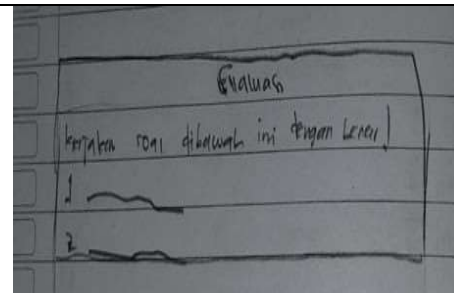 Evaluasi
kerjakan soal dibawah ini dengan benar!
1
2